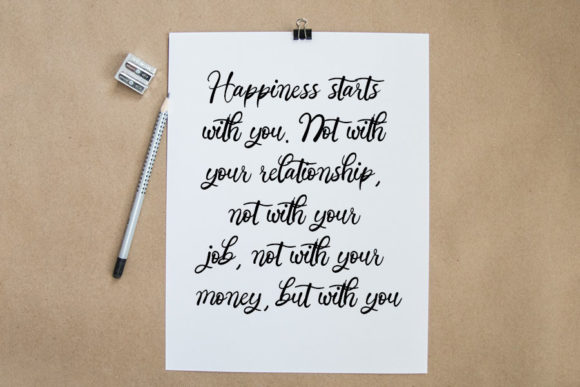 Happiness starts
with you. Not with
your relationship,
not with your
job, not with your
money, but with you